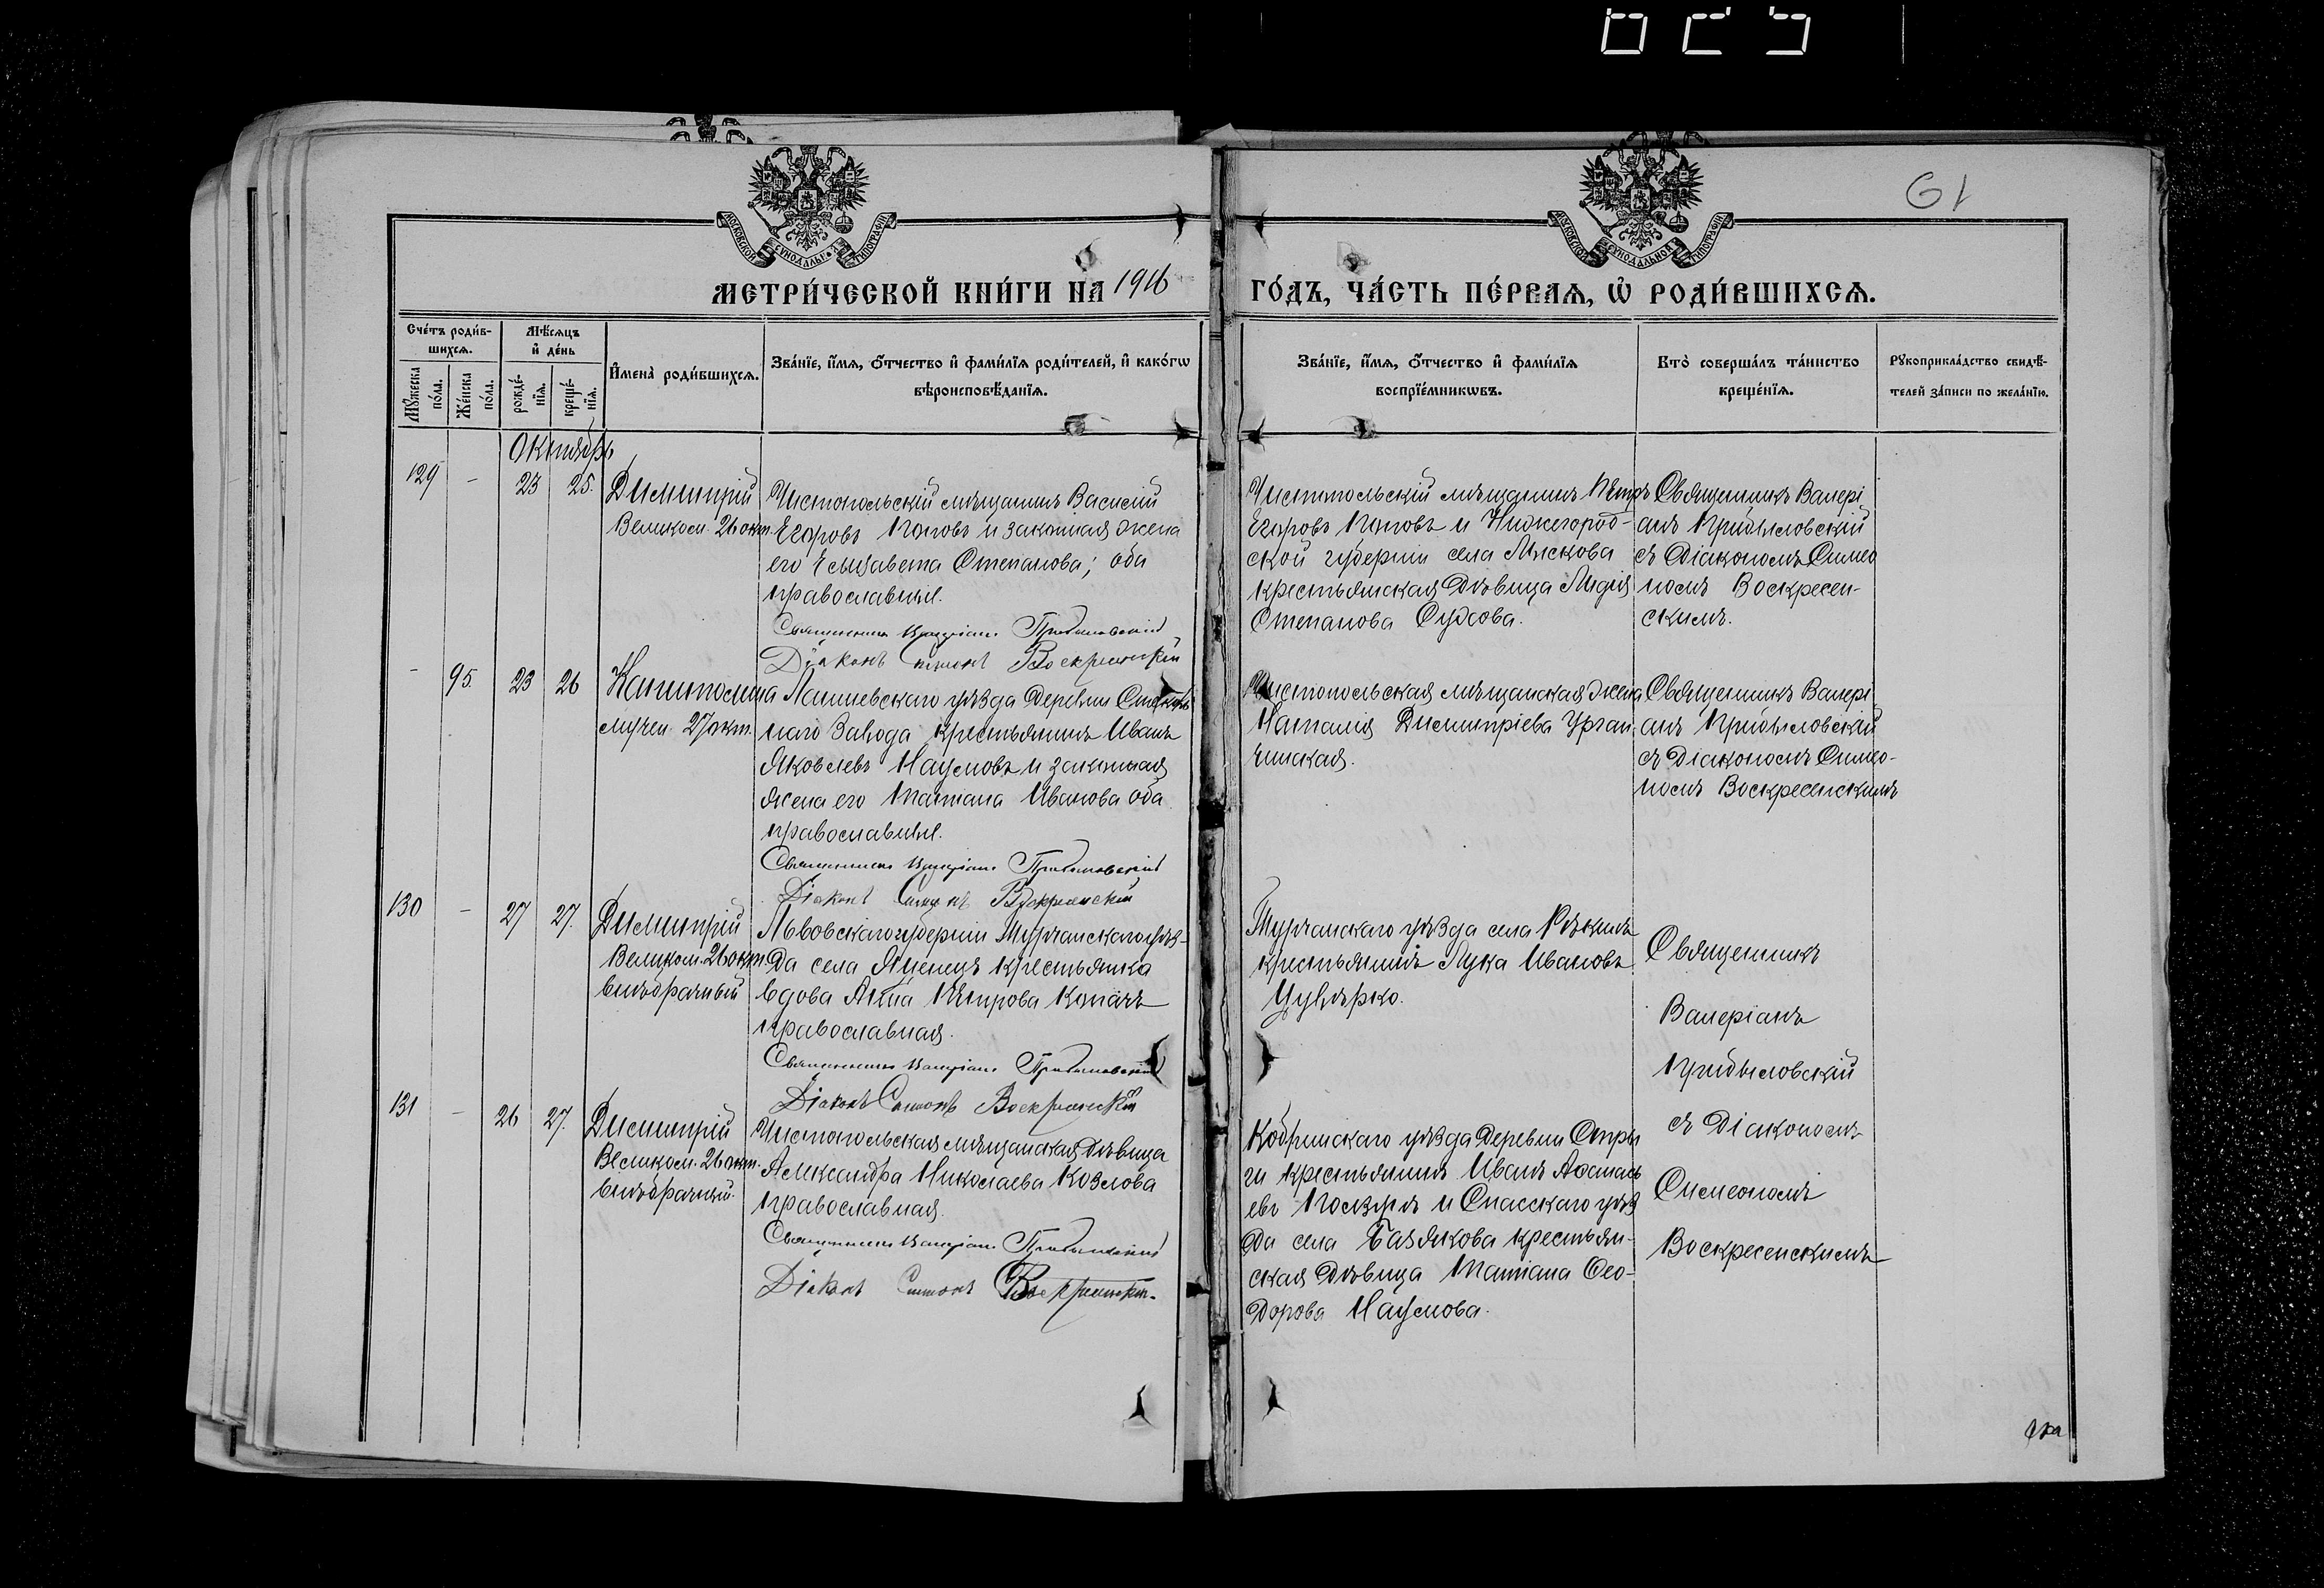 61
МОСКОВСКОЙ СѴНОДАЛЬНОЙ ТИПОГРАФІИ
МОСКОВСКОЙ СѴНОДАЛЬНОЙ ТИПОГРАФІИ
МЕТРИ́ЧЕСКОЙ КНИ́ГИ НА 1916 ГО́ДЪ, ЧА́СТЬ ПЕ́РВАѦ, Ѡ҆ РОДИ́ВШИХСѦ.
Сче́тъ роди́в-
шихсѧ.
Мꙋ́жеска по́ла.
Же́нска по́ла.
Мѣ́сѧцъ
и҆ де́нь
рожде́-
нїѧ.
креще́-
нїѧ.
И҆мена̀ роди́вшихсѧ.
Зва́нїе, и҆́мѧ, ѻ҆́тчество и҆ фами́лїѧ роди́телей, и҆ како́гѡ
вѣроисповѣ́данїѧ.
Зва́нїе, и҆́мѧ, ѻ҆́тчество и҆ фами́лїѧ
воспрїе́мникѡвъ.
Кто̀ соверша́лъ та́инство
креще́нїѧ.
Рꙋкоприкла́дство свидѣ́-
телей за́писи по жела́нїю.
Октябрь
129 - 23 25.
Димитрій
Великом. 26 окт.
Чистопольскій мѣщанинъ Василій
Егоровъ Поповъ и законная жена
его Елизавета Степанова; оба
православные.
Священникъ Валеріанъ Прибыловскій
Діаконъ Симеонъ Воскресенскій
Чистопольскій мѣщанинъ Петръ
Егоровъ Поповъ и Нижегород-
ской губерніи села Лыскова
крестьянская дѣвица Лидія
Степанова
Священникъ Валері
анъ Прибыловскій
съ Діакономъ Симео
номъ Воскресен-
скимъ.
- 95. 23 26
Капитолина
мучен. 27 окт.
Лаишевскаго уѣзда деревни
наго Завода крестьянинъ Иванъ
Яковлевъ Наумовъ и законная
жена его Татіана Иванова оба
православные.
Священникъ Валеріанъ Прибыловскій
Діаконъ Симеонъ Воскресенскій
Чистопольская мѣщанская жена
Наталія Димитріева Урган
чинская.
Священникъ Валері
анъ Прибыловскій
съ Діакономъ Симео-
номъ Воскресенскимъ
130 - 27 27.
Димитрій
Великом. 26 окт.
внѣбрачный
Львовскаго губерніи Турчанскаго уѣз-
да села крестьянка
вдова Анна Петрова Копачъ
православная.
Священникъ Валеріанъ Прибыловскій
Діаконъ Симеонъ Воскресенскій
Турчанскаго уѣзда села
крестьянинъ Лука Ивановъ
Священникъ
Валеріанъ
Прибыловскій
съ Діакономъ
Симеономъ
Воскресенскимъ
131 - 26 27.
Димитрій
Великом. 26 окт.
внѣбрачный.
Чистопольская мѣщанская дѣвица
Александра Николаева Козлова
православная.
Священникъ Валеріанъ Прибыловскій
Діаконъ Симеонъ Воскресенскій
Кобринскаго уѣзда деревни Стры
ги крестьянинъ Иванъ Афанась
евъ и Спасскаго уѣз
да села Базякова крестьян-
ская дѣвица Татіана Ѳео-
дорова Наумова.